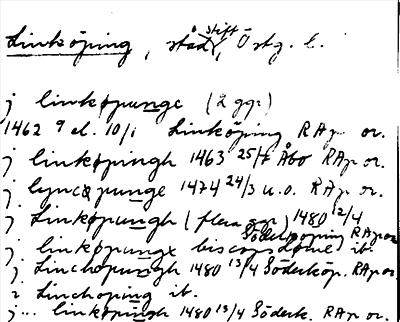 Linköping, stad, stift, Östg. l.
j linkøpunge (2 ggr)
1462 9 el. 10/1 Linköping RAp or.
j linkøpingh 1463 25/7 Åbo RAp or.
j lyncøpunge 1474 24/3 u.o. RAp or.
j Linkøpungh (flera ggr) 1480 12/4
Söderköping RAp or
j linkøpungx biscops ib.
j Linchøpungh 1480 13/4 Söderköp. RAp or
i Linchoping ib.
j... linkøpungh 1480 13/4 Söderk. RAp. or.